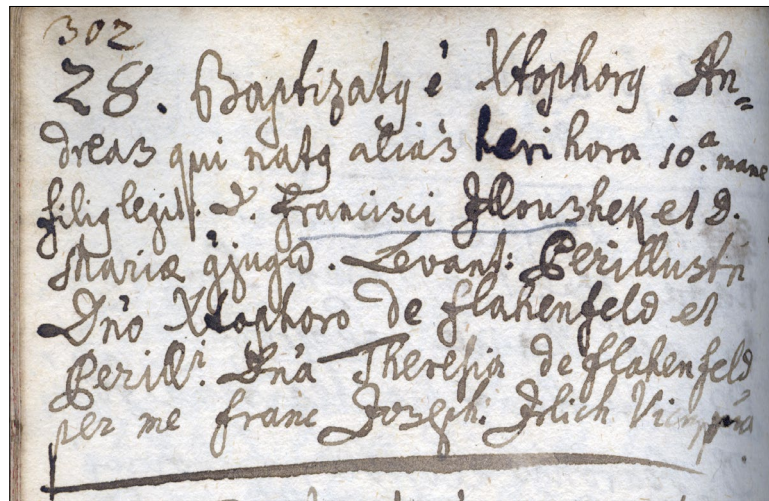 302
28. Baptizatꝰ ē Xtophorꝰ An=
dreas qui natꝰ alias heri hora 10.ª mane
filiꝰ legit: D. Francisci Illoushek et D.
Mariæ ꝯjugū. Levant: Perillustri
Dno Xtophoro de flahenfeld et
Perill.ri Dna Theresia de flahenfeld
per me franc Joseph: Jrlich